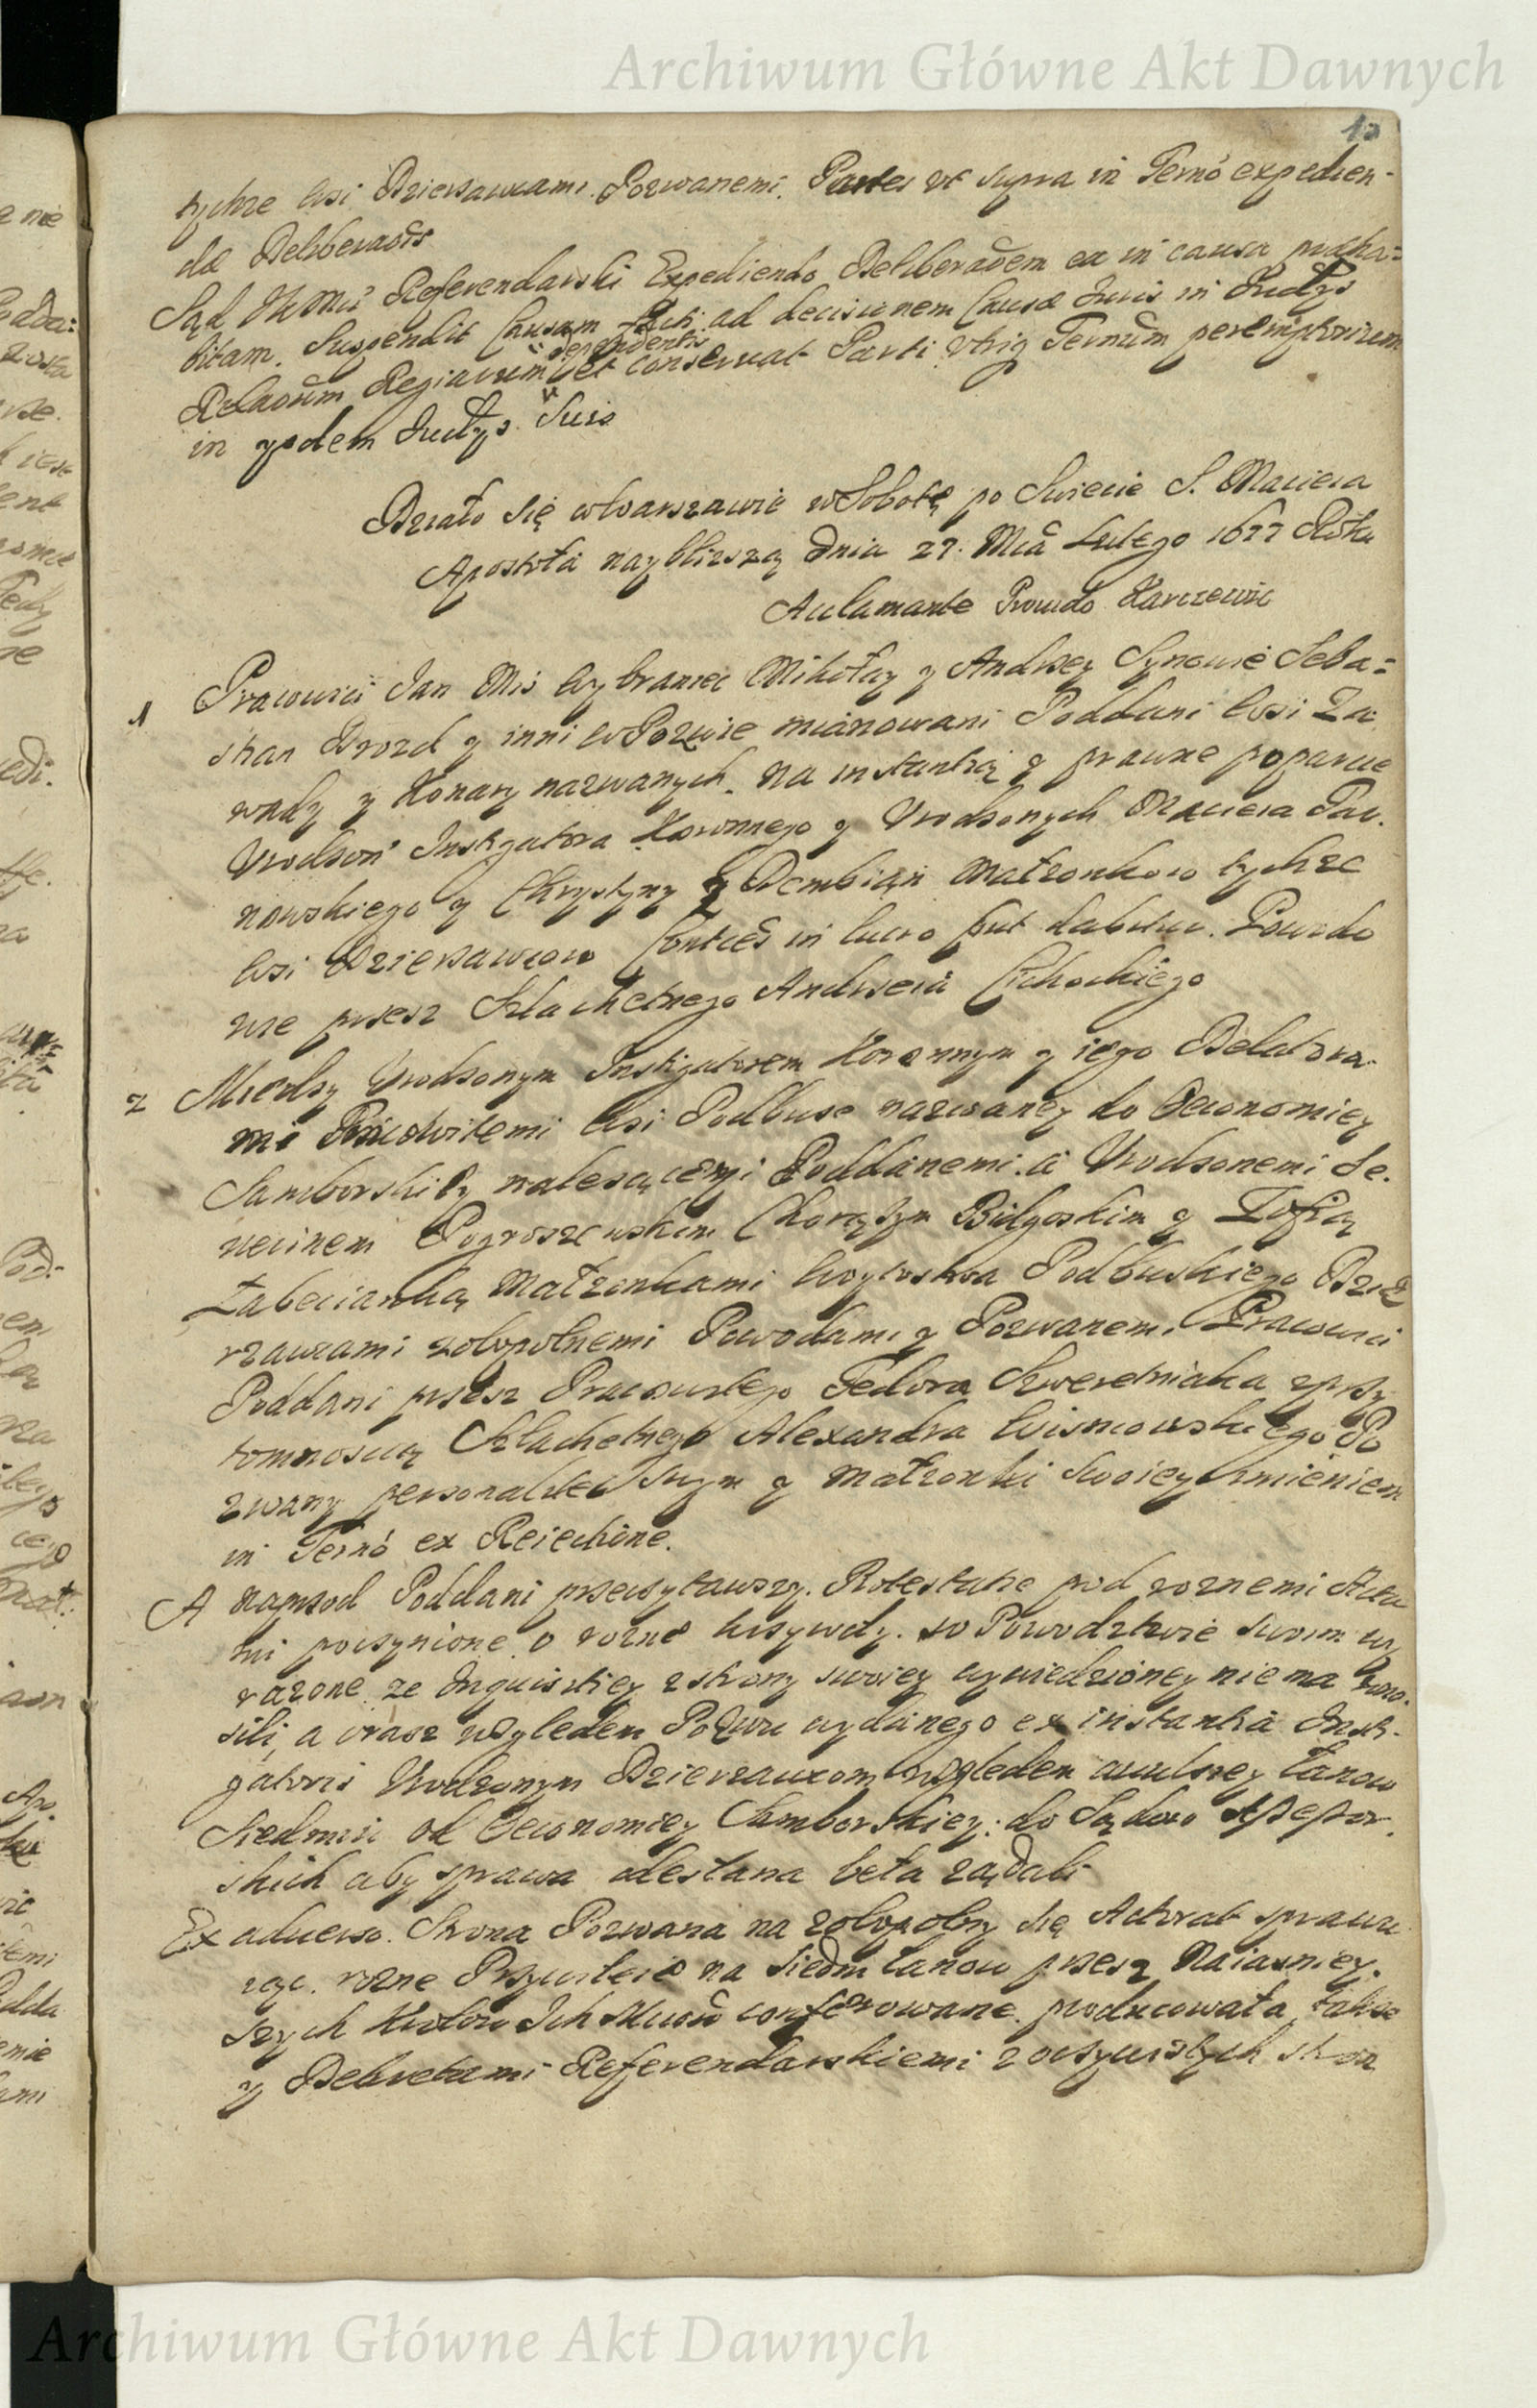 Archiwum Główne Akt Dawnych
10
tychze wsi Dzierzawcami Pozwanemi. Partes ut supra in Termō expedien-
dæ Deliberaōis
Sąd JKMci Referendarski Expediendo Deliberaōem ex in causa præha-
bitam. Suspendit Causam facti ad decisionem Causæ Juris in Judÿs
Relaōum Regiarum dependentis et conservat Parti utriq Termūm peremptorium
in ÿsdem Judÿs Suis
Działo się w Warszawie w Sobotę po Swiecie S. Macieia
Apostoła naybliszszą Dnia 27. Mcā Lutego 1677 Roku
Aclamante Provido Karczewic
1 Pracowici Jan Mis Wybraniec Mikołay y Andrzey Synowie Seba-
stian Drozd y inni w Pozwie mianowani Poddani wsi Za
wady y Konary nazwanych. na instantią y prawne poparcie
Urodzoń Instygatora Koronnego y Urodzonych Macieia Tar.
nowskiego y Chrystyny z Dembian Małzonkow tychze
wsi Dzierzawcow Conties in lucro put habetur. Powodo
wie przez Szlachetnego Andrzeia Cichockiego
2 Miedzy Urodzonym Instygatorem Koronnym y iego Delatora-
mi Pracowitemi wsi Podbuse nazwaney do Oeconomiey
Samborskiey nalezącemi Poddanemi. a Urodzonemi Se.
weinem Pogroszewskim Chorązym Bielgoskim y Zofią
Łabecianką Małzonkami Woytostwa Podbuskiego Dzie
rzawcami zobopolnemi Powodami y Pozwanemi. Pracowici
Poddani przez Pracowitego Fedora Szweredniaka zprzy
tomnoscią Szlachetnego Alexandra Wisniowskiego Po
zwany personaliter swym y Małzonki swoiey imieniem
in Termō ex Reiectione.
A naprzod Poddani przeczytawszy. Protestatie pod roznemi Akta
mi poczynione o rozne krzywdy. w Powodztwie swoim wy
razone ze Inquisitiey z strony swoiey wywiedzioney nie ma wno-
sili, a oraz względem Pozwu wydanego ex instantia Insti-
gatoris Urodzonym Dzierzawcom względem avulsey łanow
Siedmiu od Oeconomiey Samborskiey: do Sądow Assessor.
skich aby sprawa odesłana beła ządali
Ex adverso. Strona Pozwana na zobopolny się Actorat sprawu
iąc. rozne Przywileie na Siedm łanow przez Naiasniey.
szych Krolow Ich Mciow conferowane. producowała, takze
y Dekretami Referendarskiemi z oczywistych stron
Archiwum Główne Akt Dawnych